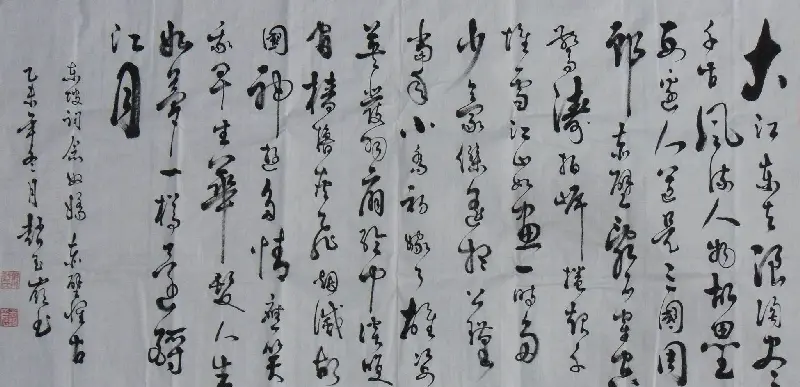 大江东去浪淘尽
千古风流人物故垒
西边人道是三国周
郎赤壁乱石穿空
惊涛拍岸卷起千
堆雪江山如画一时多
少豪杰遥想公瑾
当年小乔初嫁了雄姿
英发羽扇纶巾谈笑
间樯橹灰飞烟灭故
国神游多情应笑
我早生华发人生
如梦一樽还酹
江月
东坡词念奴娇赤壁怀古
乙未年冬月赵玉岭书